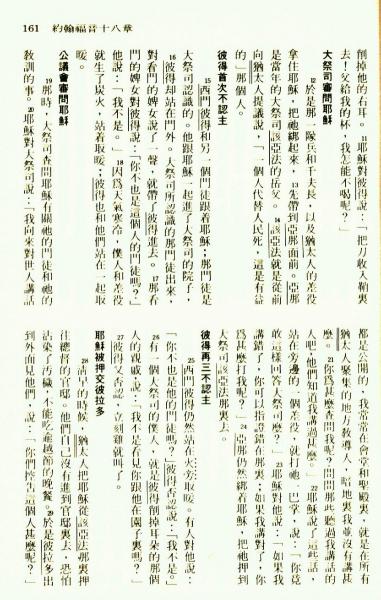 161　約翰福音十八章
削掉他的右耳。11耶穌對彼得說：「把刀收入鞘裏
去！父給我的杯，我怎能不喝呢？」
大祭司審問耶穌
12於是那一隊兵和千夫長，以及猶太人的差役
拿住耶穌，把祂綁起來，13先帶到亞那面前。亞那
是當年的大祭司該亞法的岳父。14該亞法就是從前
向猶太人提議說，「一個人代替人民死，這是有益
的」那個人。
彼得首次不認主
15西門彼得和另一個門徒跟着耶穌；那門徒是
大祭司認識的。他跟耶穌一起進了大祭司的院子，
16彼得却站在門外。大祭司所認識的那門徒出來，
對看門的婢女說了一聲，就帶了彼得進去。17那看
門的婢女對彼得說：「你不也是這個人的門徒嗎？」
他說：「我不是。」18因爲天氣寒冷，僕人和差役
就生了炭火，站着取暖；彼得也和他們站在一起取
暖。
公議會審問耶穌
19那時，大祭司查問耶穌有關祂的門徒和祂的
教訓的事。20耶穌對大祭司說：「我向來對世人講話
都是公開的，我常常在會堂和聖殿裏，就是在所有
猶太人聚集的地方教導人，暗地裏我並沒有講甚
麼。21你爲甚麼查問我呢？問問那些聽過我講話的
人吧！他們知道我講過甚麼。」22耶穌說了這些話，
站在旁邊的一個差役，就打祂一巴掌，說：「你竟
敢這樣回答大祭司麼？」23耶穌對他說：「如果我
講錯了，你可以指證錯在那裏；如果我講對了，你
爲甚麼打我呢？」24亞那仍然綁着耶穌，把祂押到
大祭司該亞法那裏去。
彼得再三不認主
25西門彼得仍然站在火旁取暖。有人對他說：
「你不也是他的門徒嗎？」彼得否認說：「我不是。」
26有一個大祭司的僕人，就是彼得削掉耳朵的那個
人的親戚，說：「我不是看見你跟他在園子裏嗎？」
27彼得又否認，立刻雞就叫了。
耶穌被押交彼拉多
28清早的時候，猶太人把耶穌從該亞法那裏押
往總督的官邸。他們自己沒有進到官邸裏去，恐怕
沾染了污穢，不能吃逾越節的晚餐。29於是彼拉多出
到外面見他們，說：「你們控告這個人甚麼呢？」